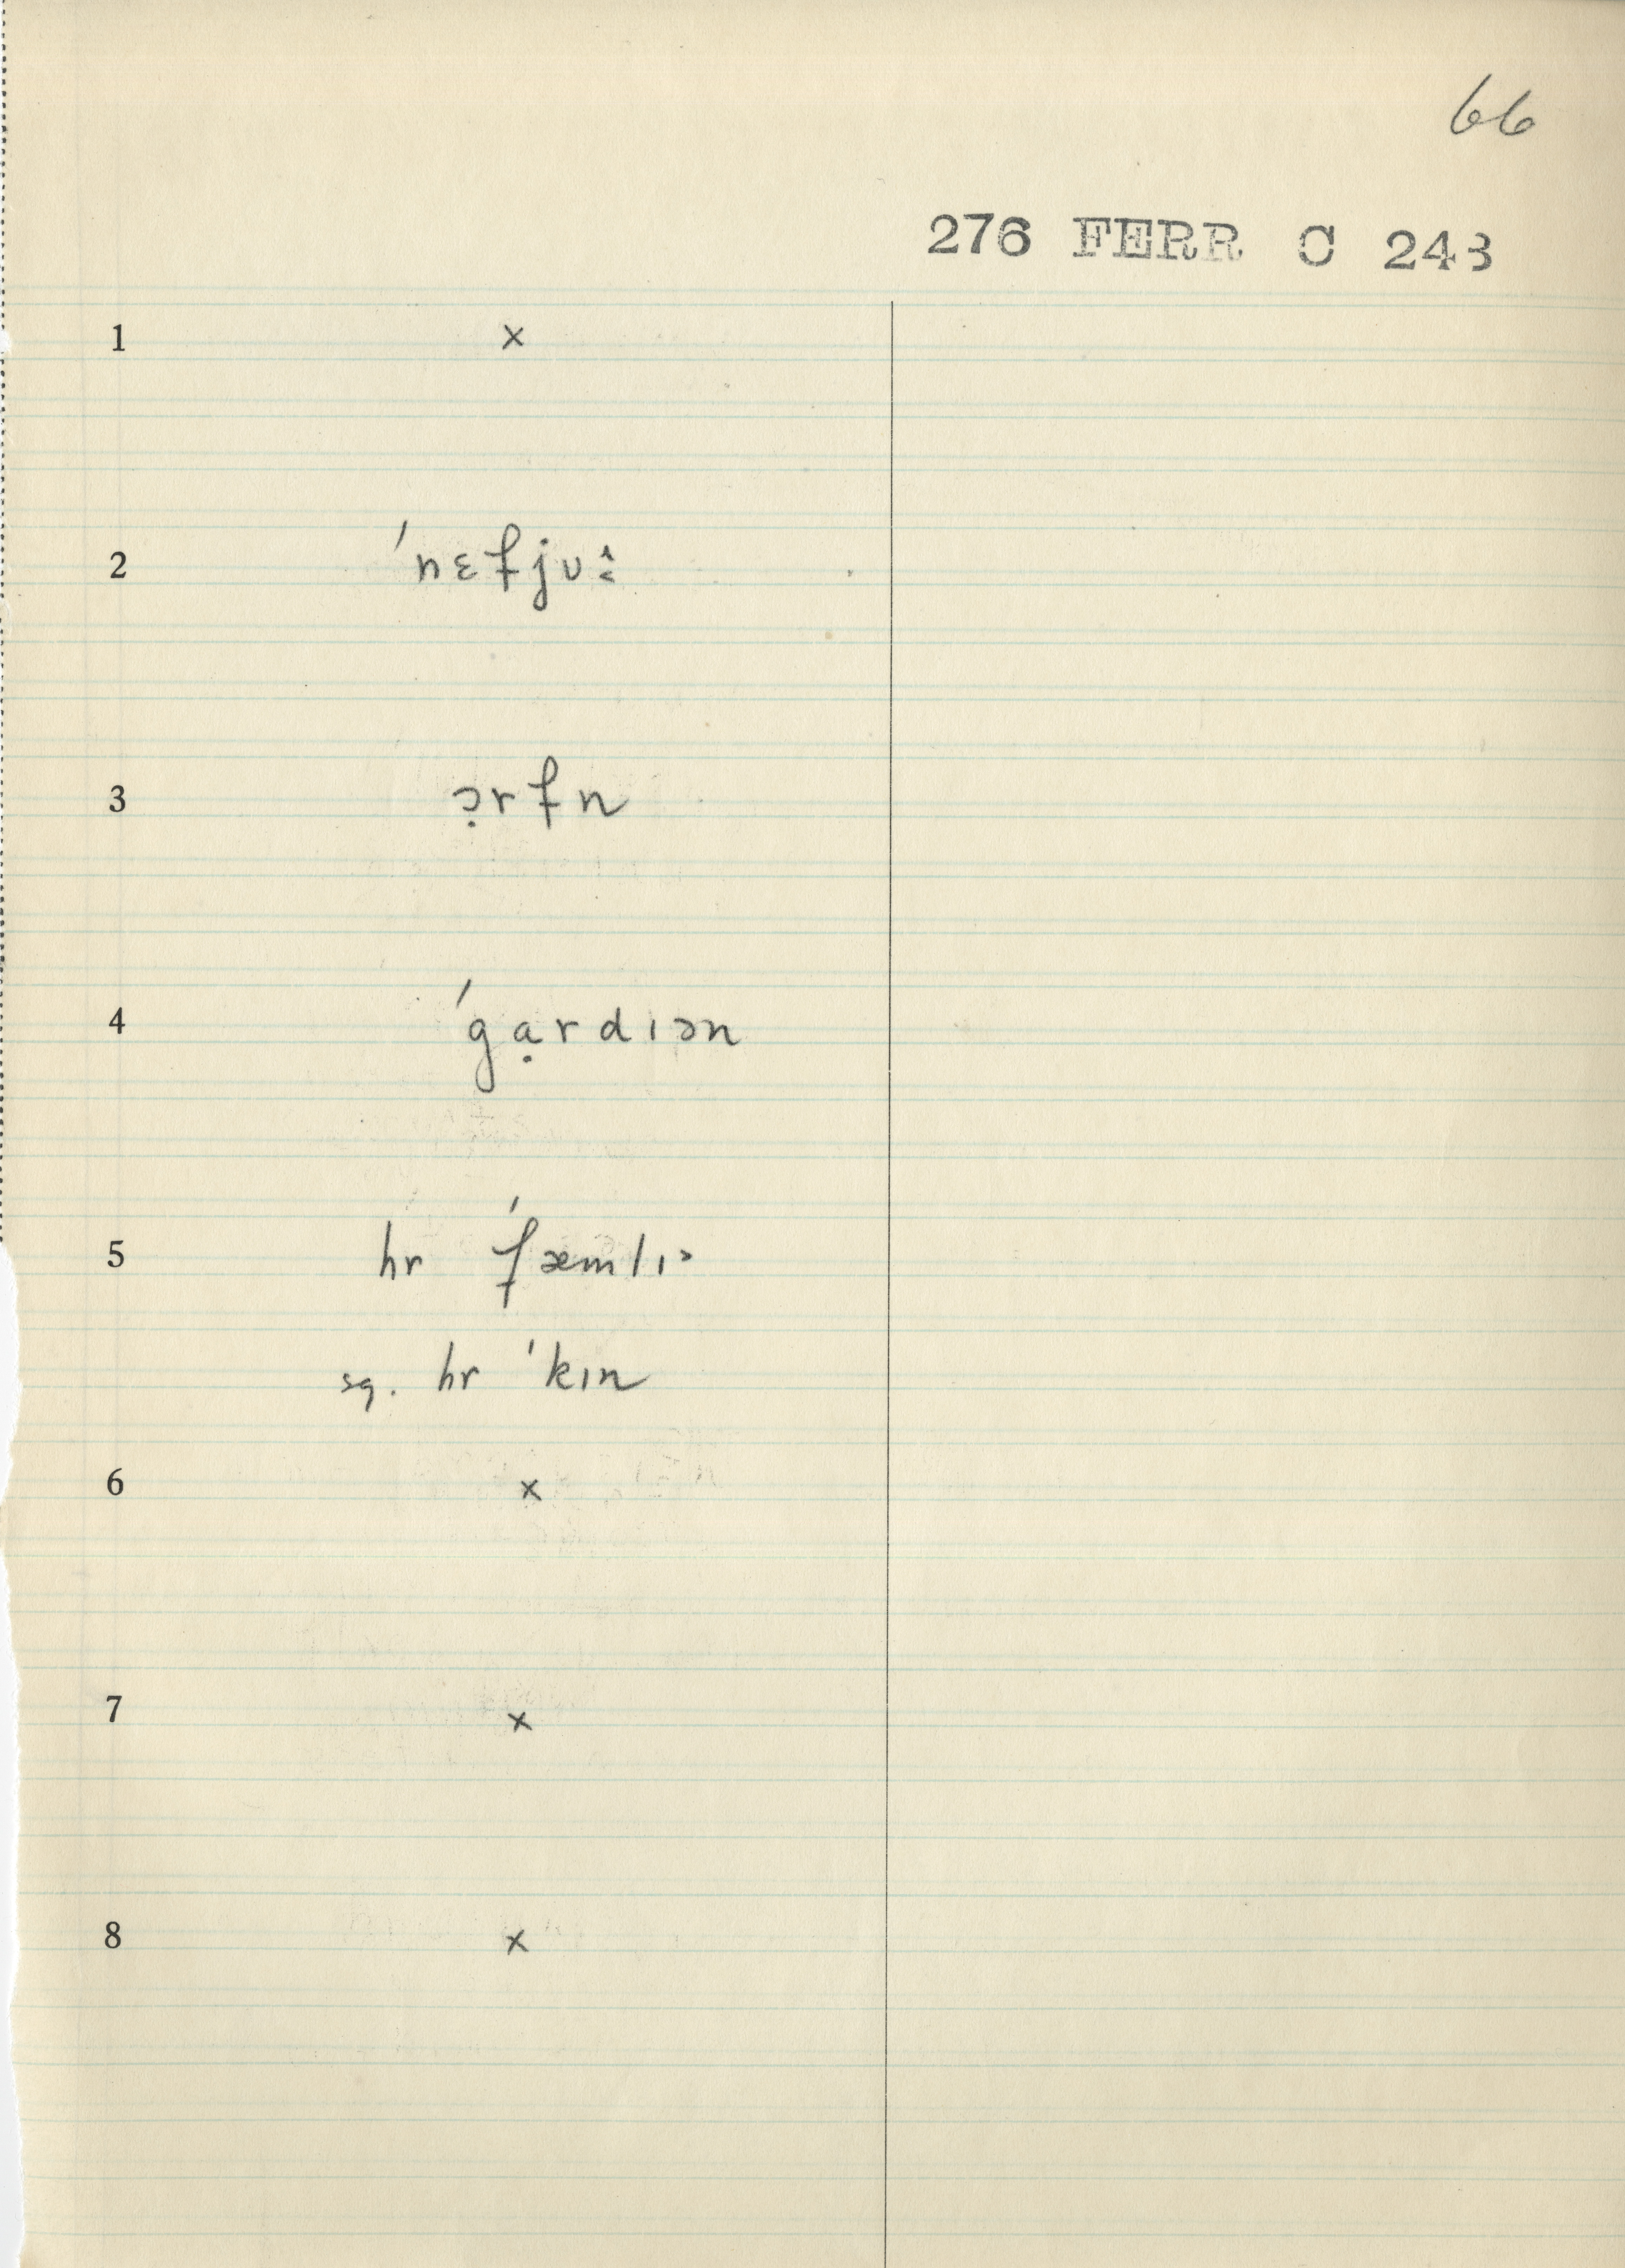 66
276 FERR C 243
1 ×
2 ˈnɛfjʊ
3 ɔ̣rfn
4 ˈgạrdɪən
5 hr ˈfæmlɪ˃
sg. hr ˈkɪn
6 ×
7 ×
8 ×